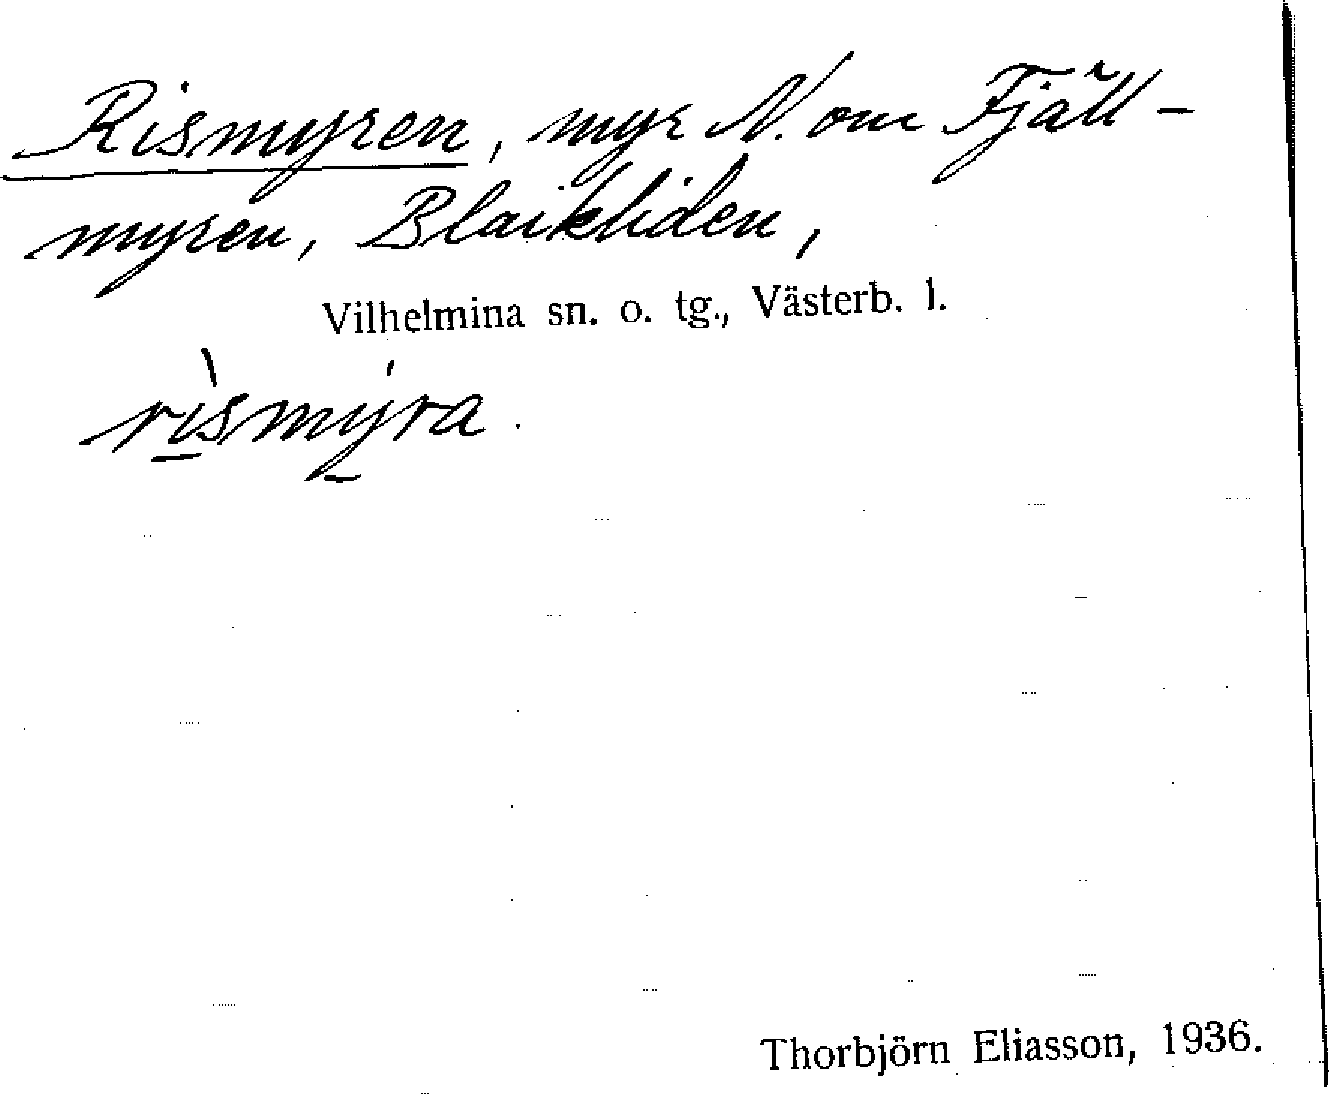 Rismyren, myr N. om Fjäll-
myren, Blaikliden,
Vilhelmina sn. o. tg., Västerb. l.
rı̀smýra.
Thorbjörn Eliasson, 1936.